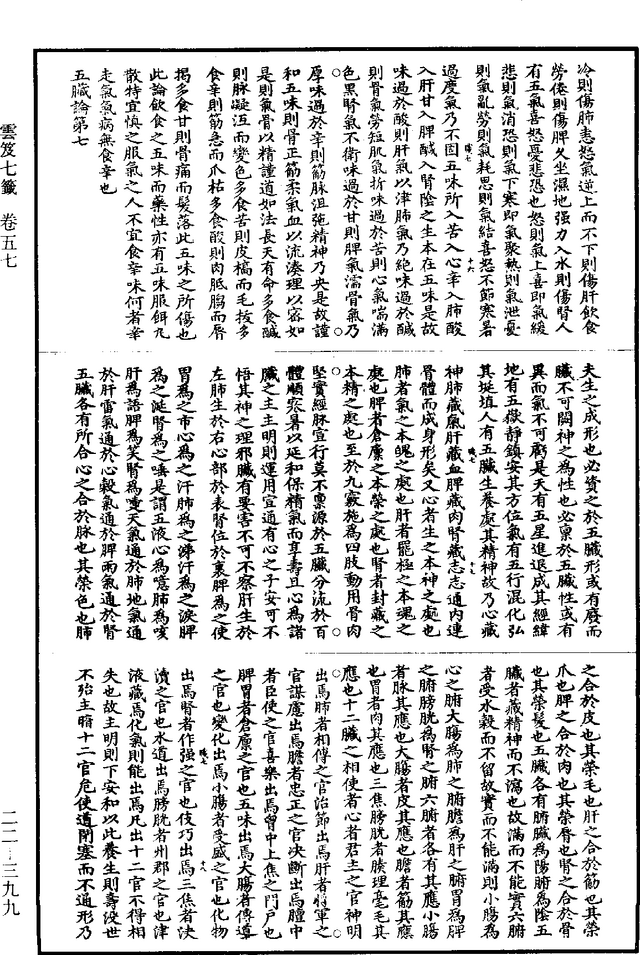 冷則傷肺恚怒氣逆上而不下則傷肝飲食
勞倦則傷脾久坐濕地強力入水則傷腎人
有五氣喜怒憂悲恐也怒則氣上喜即氣緩
悲則氣消恐則氣下寒即氣聚熱則氣泄憂
則氣亂勞則氣耗思則氣結喜怒不節寒暑
過度氣乃不固五味所入苦入心辛入肺酸
入肝甘入脾鹹入腎陰之生本在五味是故
味過於酸則肝氣以津肺氣乃絕味過於鹹
則骨氣勞短肌氣折味過於苦則心氣喘滿
色黑腎氣不衛味過於甘則脾氣濡骨氣乃
厚味過於辛則筋脉沮弛精神乃央是故謹
和五味則骨正筋柔氣血以流湊理以密如
是則氣骨以精謹道如法長天有命多食鹹
則脉凝沍而變色多食苦則皮槁而毛拔多
食辛則筋急而爪枯多食酸則肉胝而脣
揭多食甘則骨痛而髮落此五味之所傷也
此論飲食之五味而藥性亦有五味服餌九
散特宜慎之服氣之人不宜食辛味何者辛
走氣氣病無食辛也
五臟論第七
夫生之成形也必資之於五臟形或有廢而
臟不可闕神之為性也必稟於五臟性或有
異而氣不可虧是天有五星進退成其經緯
地有五嶽靜鎮安其方位氣有五行混化弘
其埏埴人有五臟生養處其精神故乃心藏
神肺藏氣肝藏血脾藏肉腎藏志志通內連
骨體而成身形矣又心者生之本神之處也
肺者氣之本魄之處也肝者罷極之本魂之
處也脾者倉廩之本榮之處也腎者封藏之
本精之處也至於九竅施為四肢動用骨肉
堅實經脉宣行莫不稟源於五臟分流於百
體順寒暑以延和保精氣而享壽且心為諸
臟之主主明則運用宣通有心之子安可不
悟其神之理邪臟有要害不可不察肝生於
左肺生於右心部於表腎位於裏脾為之使
胃為之市心為之汗肺為之涕汗為之淚脾
為之涎腎為之唾是謂五液心為噫肺為咳
肝為語脾為笑腎為嚏天氣通於肺地氣通
於肝雷氣通於心穀氣通於脾雨氣通於腎
五臟各有所合心之合於脉也其榮色也肺
之合於皮也其榮毛也肝之合於筋也其榮
爪也脾之合於肉也其榮脣也腎之合於骨
也其榮髮也五臟各有腑臟為陽腑為陰五
臟者藏精神而不瀉也故滿而不能實六腑
者受水穀而不留故實而不能滿則小腸為
心之腑大腸為肺之腑膽為肝之腑胃為脾
之腑膀胱為腎之腑六腑者各有其應小腸
者脉其應也大腸者皮其應也膽者筋其應
也胃者肉其應也三焦膀胱者腠理毫毛其
應也十二臟之相使者心者君主之官神明
出焉肺者相傳之官治節出焉肝者將軍之
官謀慮出焉膽者忠正之官決斷出焉膻中
者臣使之官喜樂出焉曾中上焦之門戶也
脾胃者倉廩之官也五味出焉大腸者傳導
之官也變化出焉小腸者受盛之官也化物
出焉腎者作強之官也伎巧出焉三焦者決
瀆之官也水道出焉膀胱者州郡之官也津
液藏焉化氣則能出焉凡此十二官不得相
失也故主明則下安和以此養生則壽沒世
不殆主暗十二官危使道閉塞而不通形乃
雲笈七籤 卷五七
二二—三九九